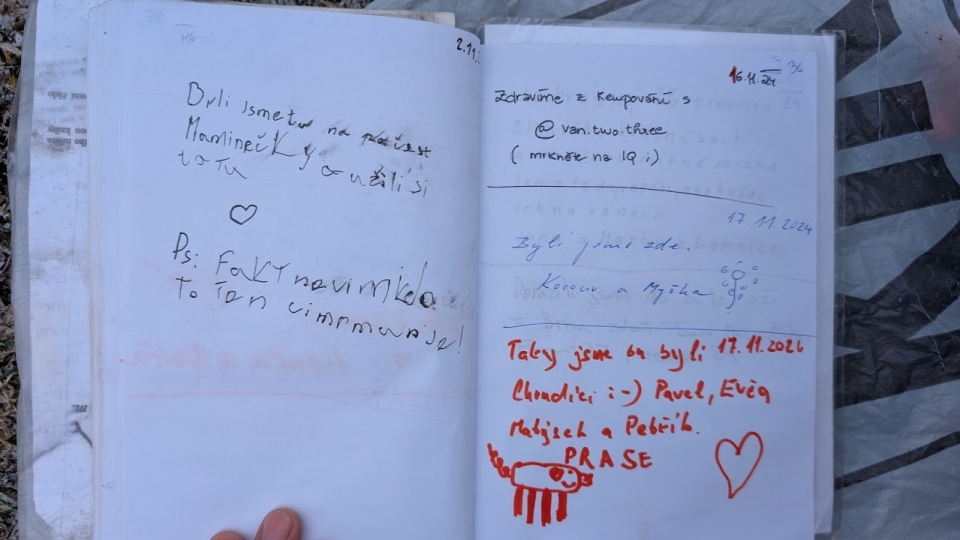 2.11.
Byli jsme tu na počest
Maminečky a užili si
to tu
Ps: Fakt nevim kdo
to ten cimrman je!
16.11.24
36
Zdravíme z kempování s
@ van.two.three
( mrkněte na IG :)
17.11.2024
Byli jsme zde.
Kocour a Myška
Taky jsme tu byli 17.11.2024
Choudíci :-) Pavel, Evča
Matýsek a Petřík.
PRASE